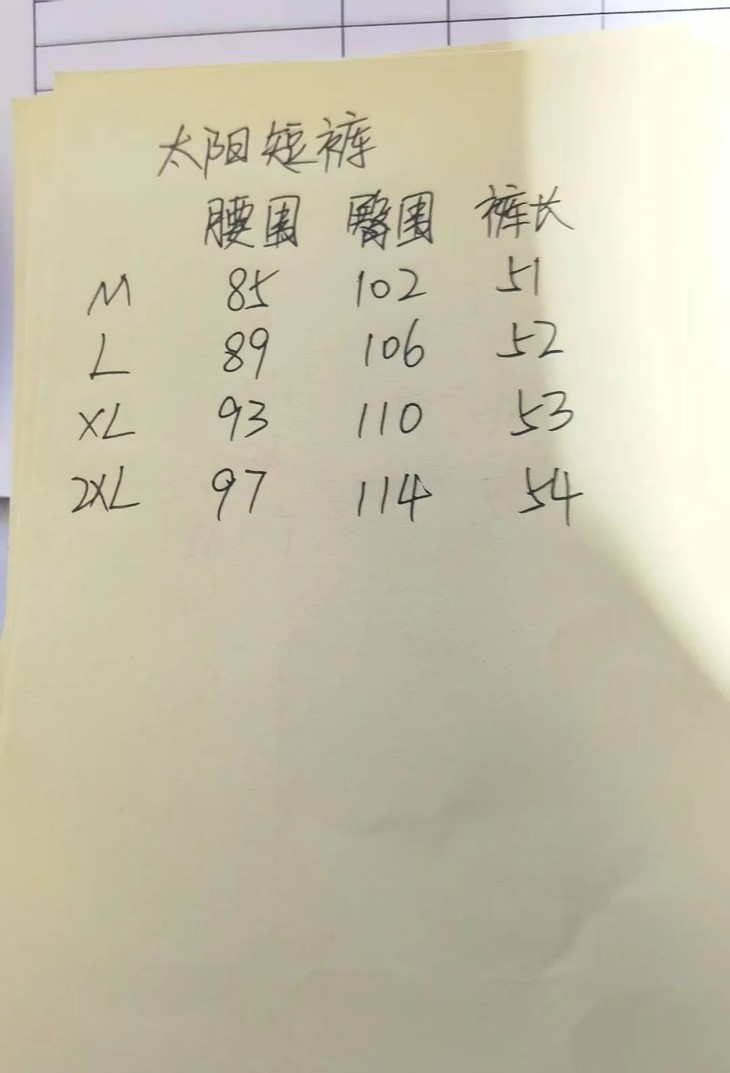 太阳短裤
腰围 臀围 裤长
M 85 102 51
L 89 106 52
XL 93 110 53
2XL 97 114 54